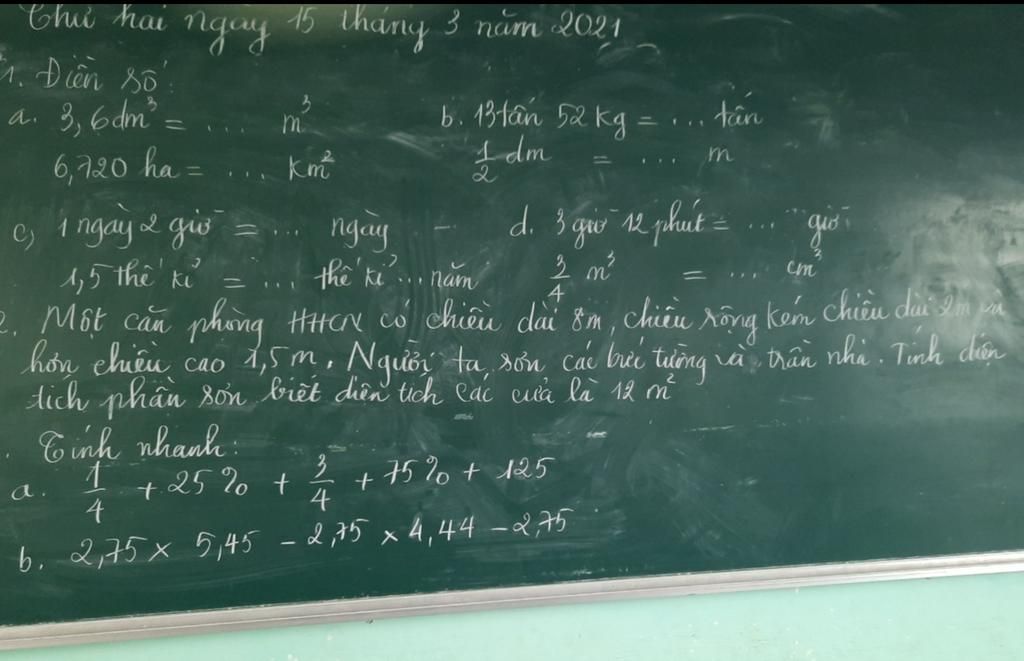 Thứ hai ngày 15 tháng 3 năm 2021
1. Điền số:
a. 3,6dm³ = ... m³ b. 13tấn 52kg = ... tấn
6,720 ha = ... km² 1/2 dm = ... m
c, 1 ngày 2 giờ = ... ngày d. 3 giờ 12 phút = ... giờ
1,5 thế kỉ = ... thế kỉ ... năm 3/4 m³ = ... cm³
2. Một căn phòng HHCN có chiều dài 8m, chiều rộng kém chiều dài 2m và
hơn chiều cao 1,5m. Người ta sơn các bức tường và trần nhà. Tính diện
tích phần sơn biết diện tích các cửa là 12 m²
. Tính nhanh:
a. 1/4 + 25% + 3/4 + 75% + 125
b. 2,75 × 5,45 - 2,75 × 4,44 - 2,75